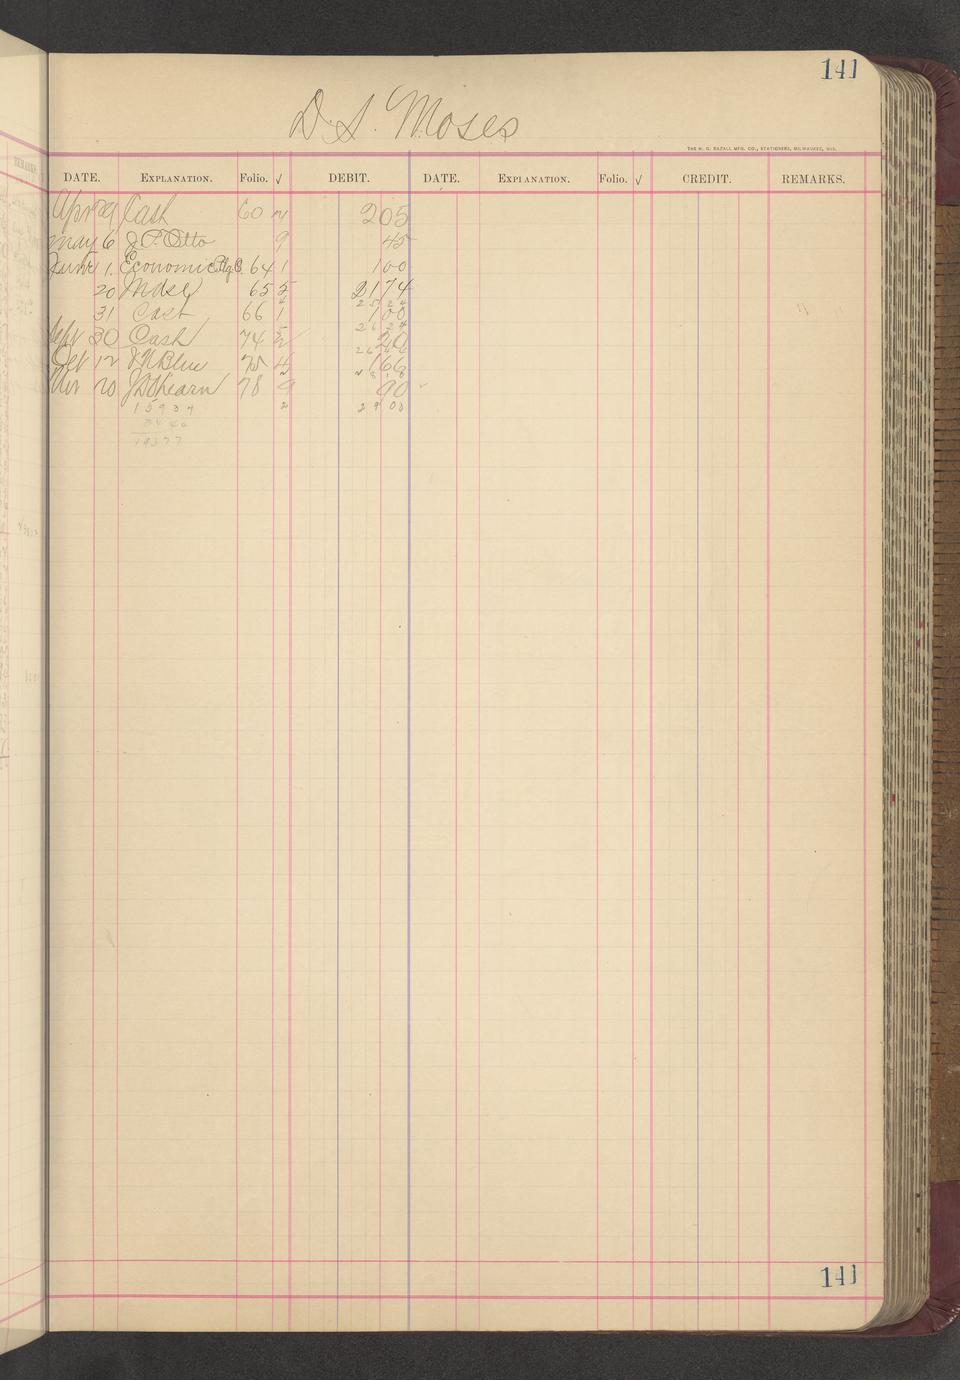 141
D. S. Moses
THE H. G. RAZALL MFG. CO., STATIONERS, MILWAUKEE, WIS.
DATE. EXPLANATION. Folio. √ DEBIT. DATE. EXPLANATION. Folio. √ CREDIT. REMARKS.
Apr 29 Cash 60 2 205
May 6 J. P. Otto 9 45
June 1. Economic 64 1 100
20 Mdse 65 5 2174
4 25 24
31 Cash 66 1 100
5 26 24
Sept 30 Cash 74 2 20
26 44
Oct 12 J N Blue 75 4 166
2 28 18
Nov 20 J D Shearn 78 9 90
15937 2 29 00
3440
19377
141